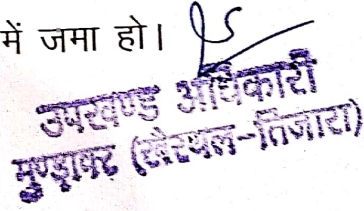 में जमा हो।
उपखण्ड अधिकारी
मुण्डावर (खैरथल-तिजारा)